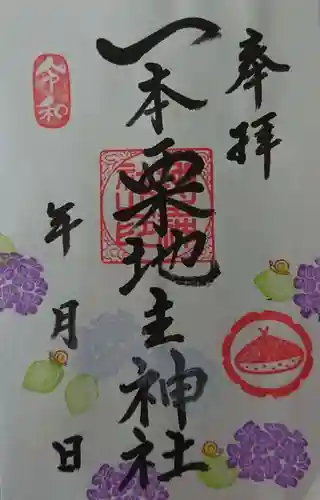 奉拝
一本栗地主神社
令和
年月日